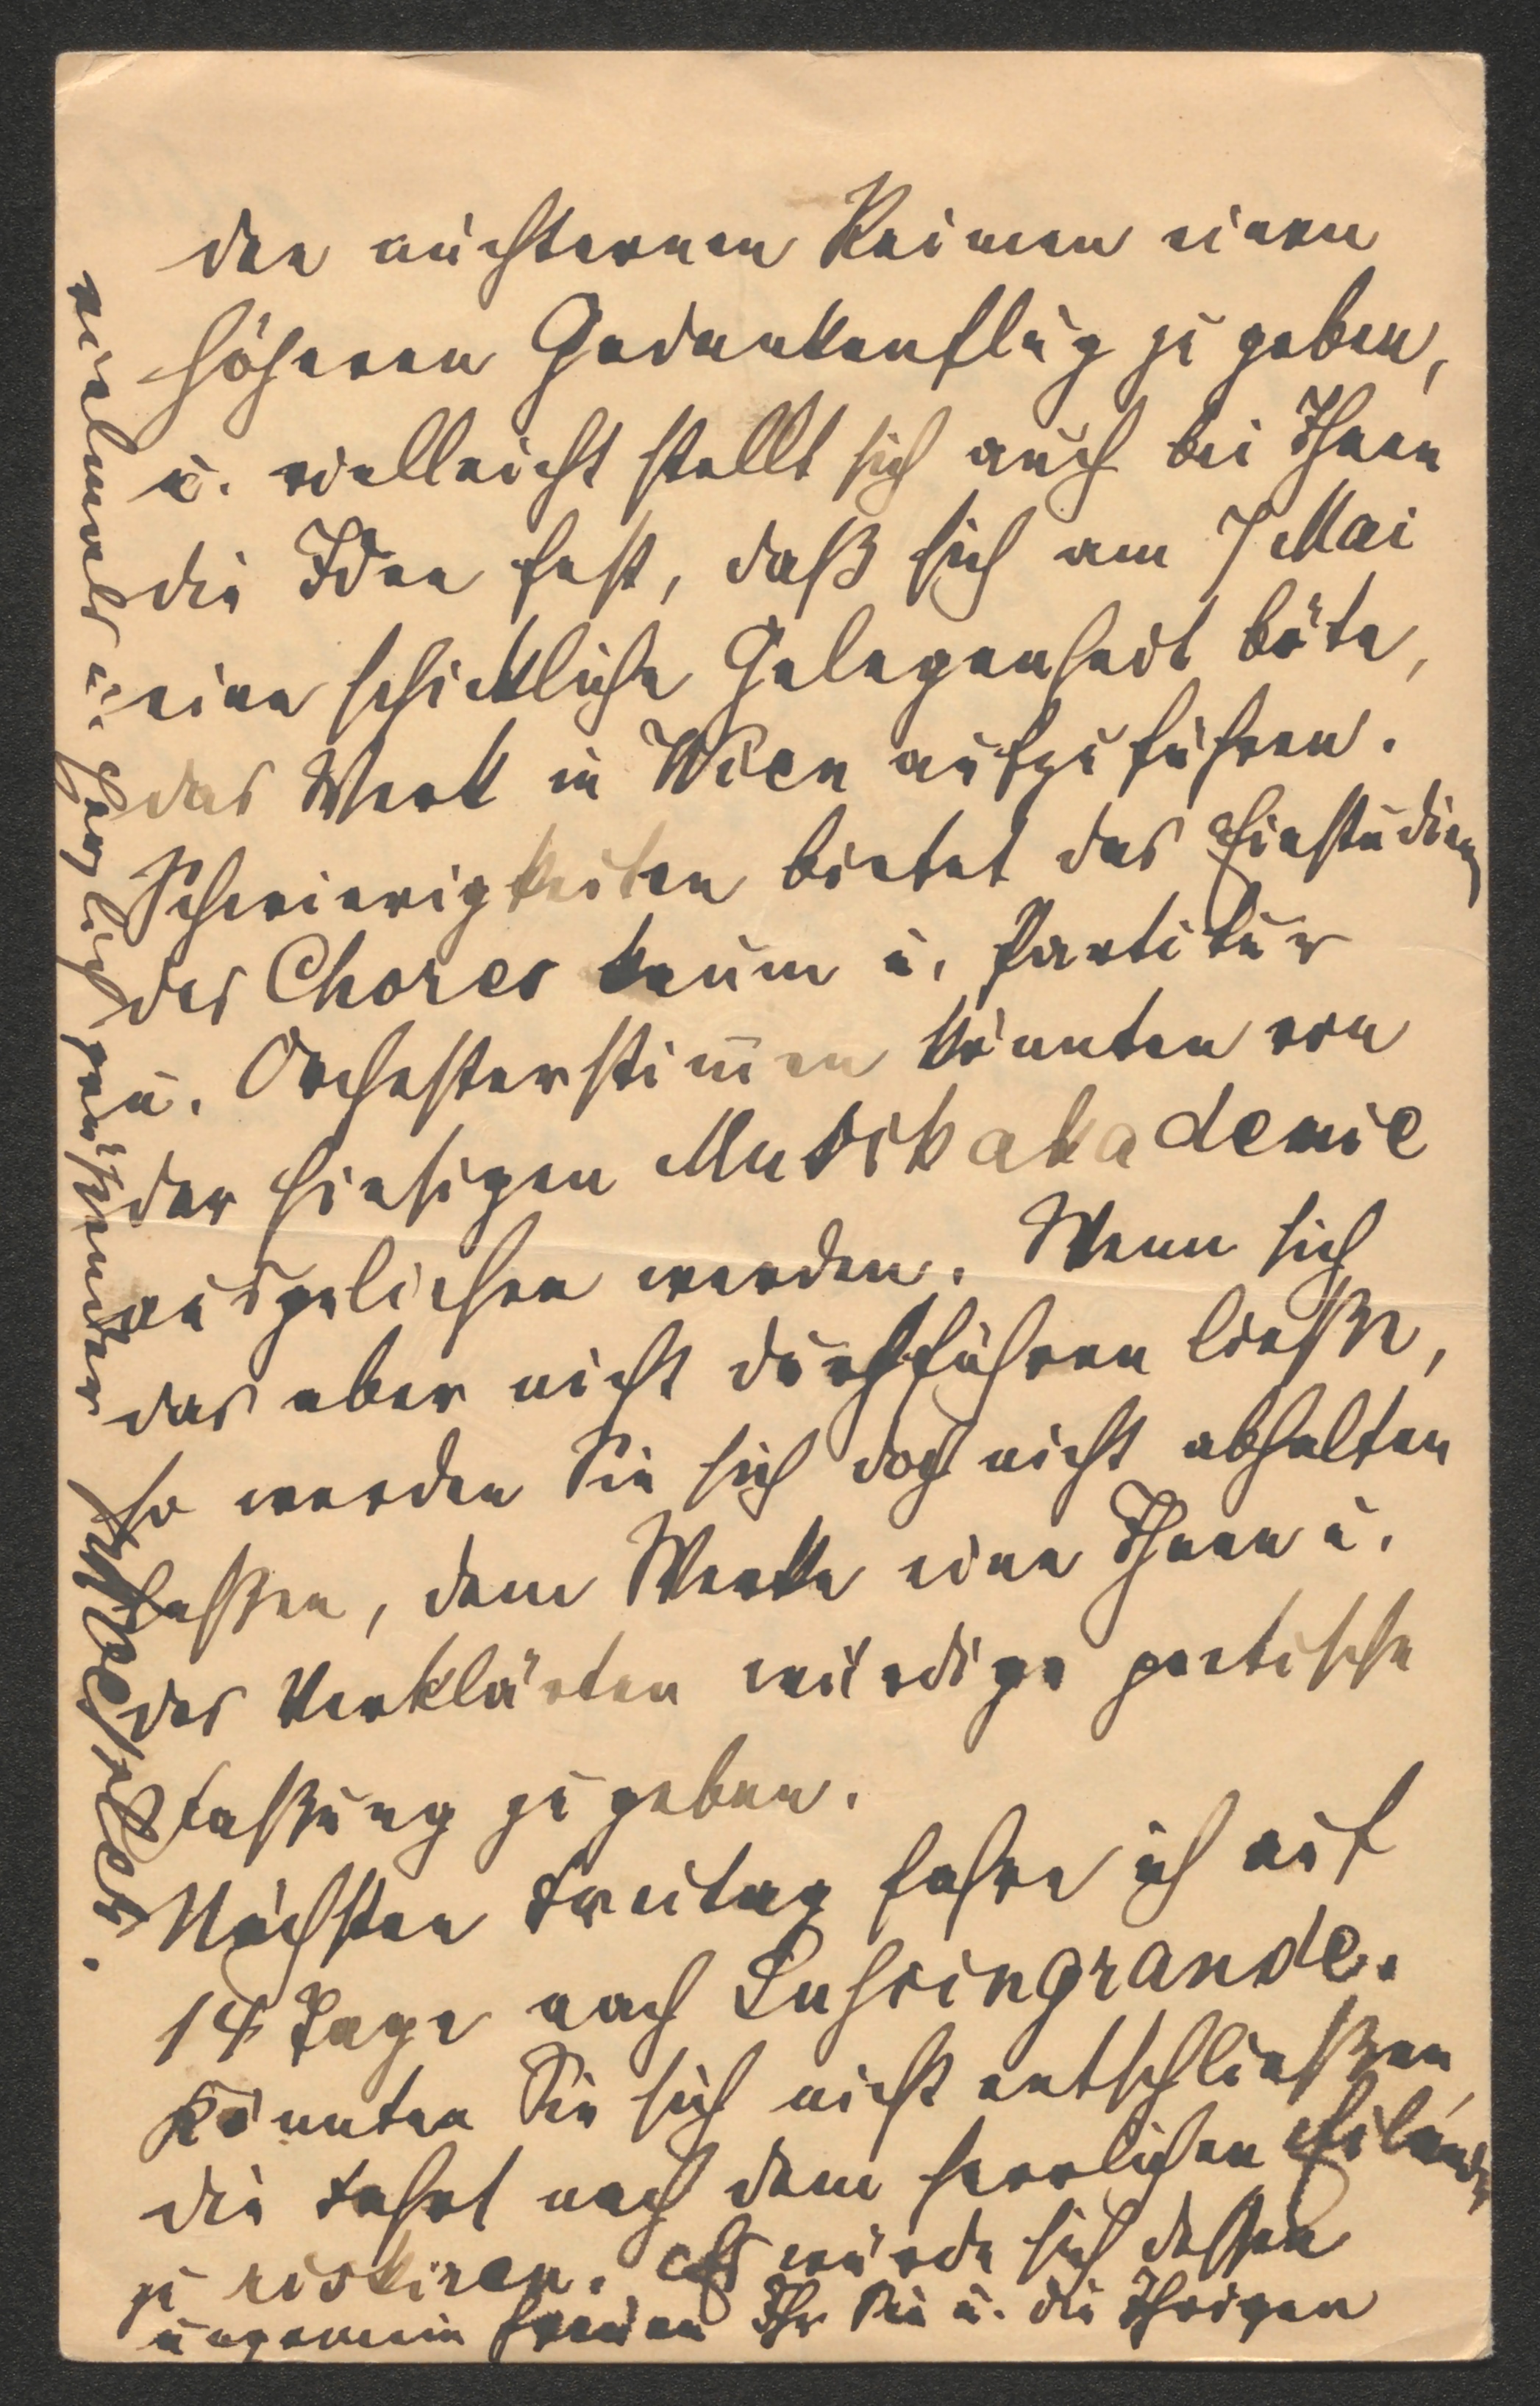 den nüchternen Reimen einen
höheren Gedankenflug zu geben,
u. vielleicht stellt sich auch bei Ihnen
die Idee fest, daß sich am 7 Mai
eine schickliche Gelegenheit böte,
das Werk in Wien aufzuführen.
Schwierigkeiten bietet das Einstudien
des Chores kaum u. Partitur
u. Orchesterstim̅en könnten von
der hiesigen Musikakademie
ausgeliehen werden. Wenn sich
das aber nicht durchführen ließe,
so werden Sie sich doch nicht abhalten
laßen, dem Werke eine Ihnen u.
des Verklärten würdige poetische
Faßung zu geben.
Nächsten Freitag fahre ich auf
14 Tage nach Lussingrande.
Könnten Sie sich nicht entschließen
die Fahrt nach dem herrlichen Eilande
zu riskiren. Es würde sich dessen
ungemein freuen Ihr Sie u. die Ihrigen
vielmals u. herzlich grüßender